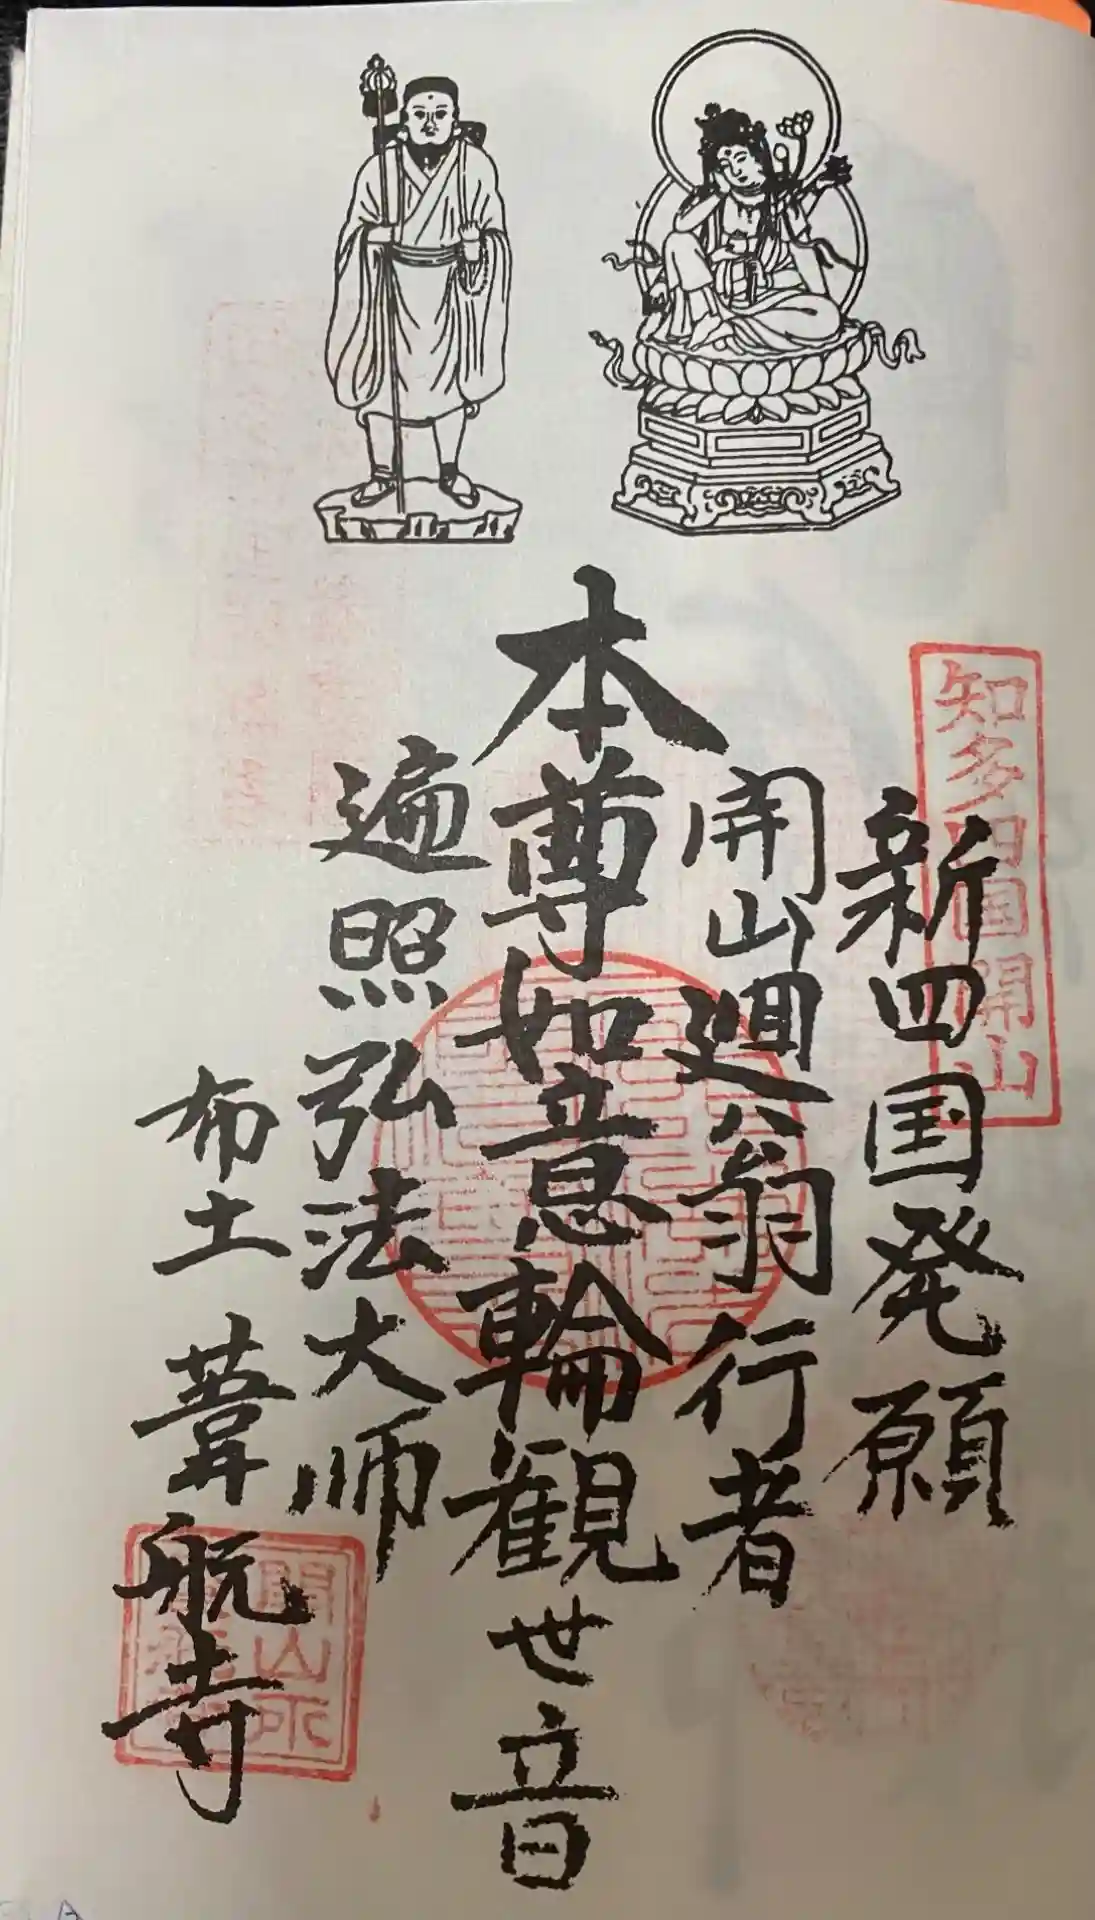 知多四国開山
新四国発願
開山廻翁行者
本尊如意輪観世音
遍照弘法大师
布土 葦航寺
開山所